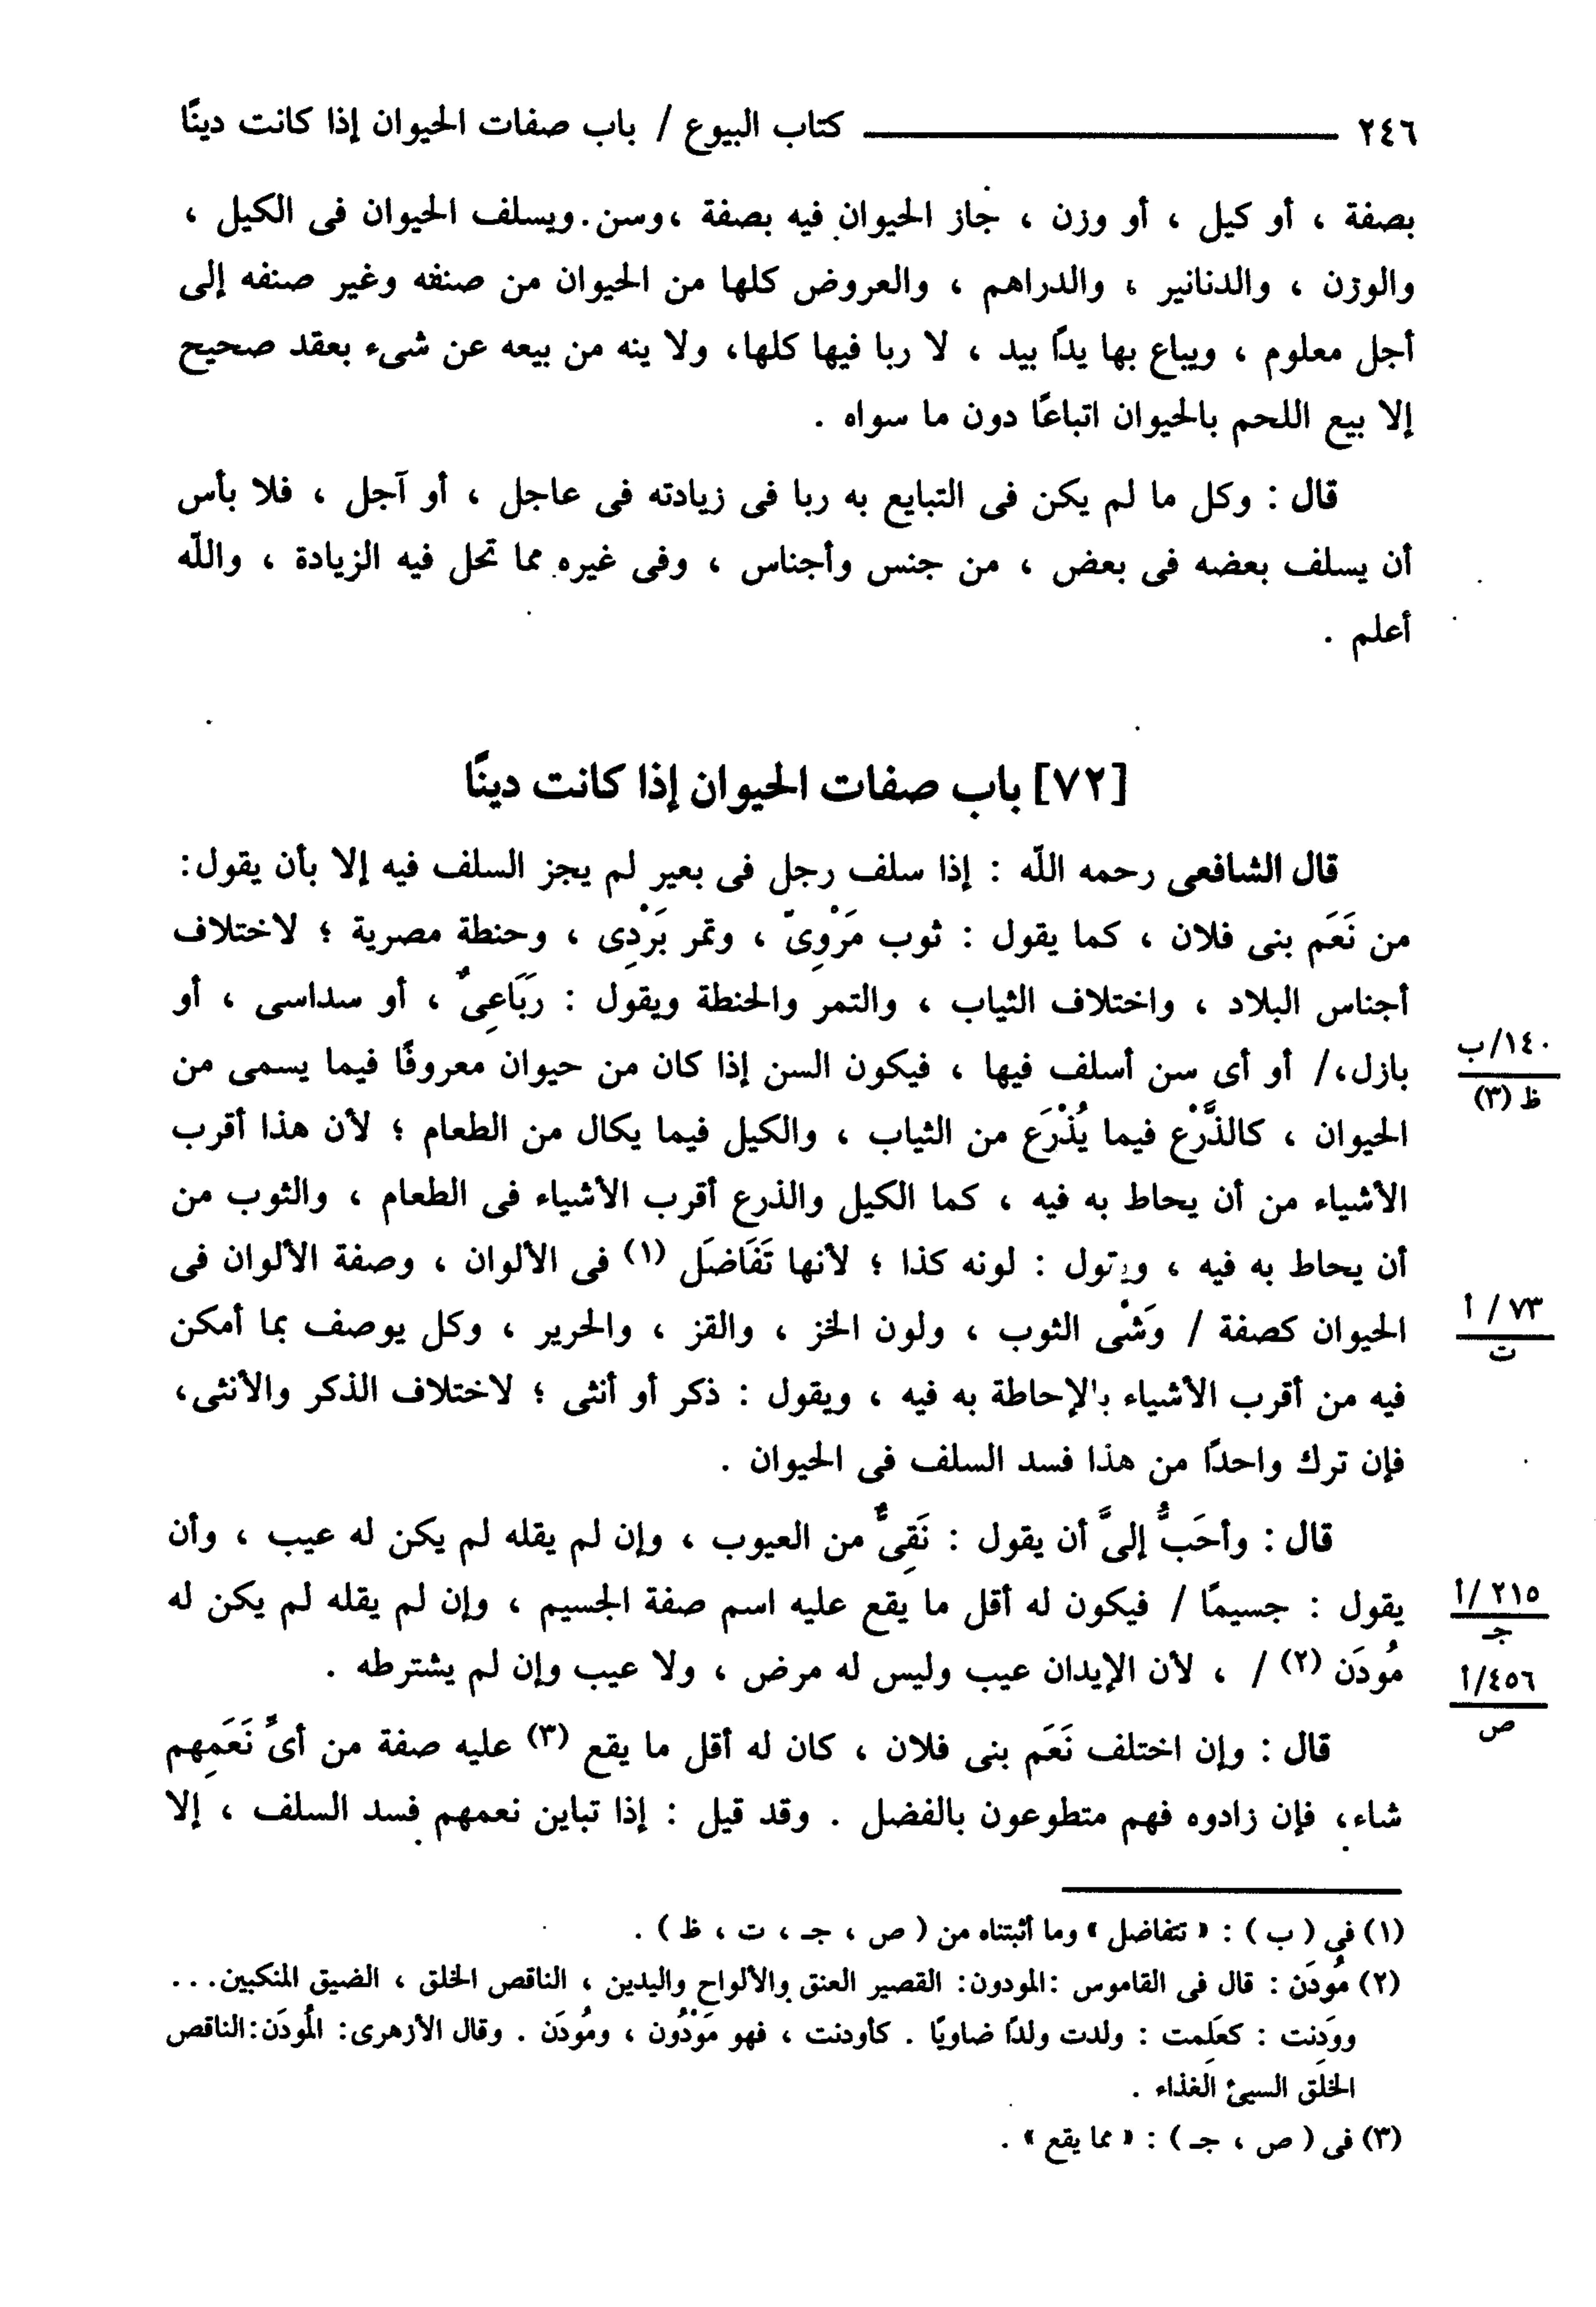 ٢٤٦ كتاب البيوع / باب صفات الحيوان إذا كانت دينًا
بصفة ، أو كيل ، أو وزن ، جاز الحيوان فيه بصفة ، وسن . ويسلف الحيوان فى الكيل ،
والوزن ، والدنانير ، والدراهم ، والعروض كلها من الحيوان من صنفه وغير صنفه إلى
أجل معلوم ، ويباع بها يدًا بيد ، لا ربا فيها كلها، ولا ينه من بيعه عن شىء بعقد صحيح
إلا بيع اللحم بالحيوان اتباعًا دون ما سواه .
قال : وكل ما لم يكن فى التبايع به ربا فى زيادته فى عاجل ، أو آجل ، فلا بأس
أن يسلف بعضه فى بعض ، من جنس وأجناس ، وفى غيره مما تحل فيه الزيادة ، واللّه
أعلم .
[٧٢] باب صفات الحيوان إذا كانت دينًا
قال الشافعى رحمه اللّه : إذا سلف رجل فى بعير لم يجز السلف فيه إلا بأن يقول:
من نَعَم بنى فلان ، كما يقول : ثوب مَرْوِىّ ، وتمر بَرْدِى ، وحنطة مصرية ؛ لاختلاف
أجناس البلاد ، واختلاف الثياب ، والتمر والحنطة ويقول : رَبَاعِىٌّ ، أو سداسى ، أو
بازل،/ أو أى سن أسلف فيها ، فيكون السن إذا كان من حيوان معروفًا فيما يسمى من
١٤٠/ب
ظ (٣)
الحيوان ، كالذَّرْع فيما يُذْرَع من الثياب ، والكيل فيما يكال من الطعام ؛ لأن هذا أقرب
الأشياء من أن يحاط به فيه ، كما الكيل والذرع أقرب الأشياء فى الطعام ، والثوب من
أن يحاط به فيه ، ويقول : لونه كذا ؛ لأنها تَفَاضَل (١) فى الألوان ، وصفة الألوان فى
الحيوان كصفة / وَشْى الثوب ، ولون الخز ، والقز ، والحرير ، وكل يوصف بما أمكن
٧٣ / أ
ت
فيه من أقرب الأشياء بالإحاطة به فيه ، ويقول : ذكر أو أنثى ؛ لاختلاف الذكر والأنثى،
فإن ترك واحدًا من هذا فسد السلف فى الحيوان .
قال : وأحَبُّ إلىَّ أن يقول : نَقِىٌّ من العيوب ، وإن لم يقله لم يكن له عيب ، وأن
يقول : جسيمًا / فيكون له أقل ما يقع عليه اسم صفة الجسيم ، وإن لم يقله لم يكن له
٢١٥ /أ
جـ
مُودَن (٢) / ، لأن الإيدان عيب وليس له مرض ، ولا عيب وإن لم يشترطه .
٤٥٦/أ
ص
قال : وإن اختلف نَعَم بنى فلان ، كان له أقل ما يقع (٣) عليه صفة من أىِّ نَعَمِهم
شاء، فإن زادوه فهم متطوعون بالفضل . وقد قيل : إذا تباين نعمهم فسد السلف ، إلا
(١) فى ( ب ) : « تتفاضل » وما أثبتناه من ( ص ، جـ ، ت ، ظ ) .
(٢) مُودَن : قال فى القاموس :المودون: القصير العنق والألواح واليدين ، الناقص الخلق ، الضيق المنكبين...
وودَنت : كعَلِمت : ولدت ولدًا ضاويًا . كأودنت ، فهو مَوْدُون ، ومُودَن . وقال الأزهرى: المُودَن:الناقص
الخلَق السيئ الغذاء .
(٣) فى ( ص ، جـ ) : « مما يقع » .